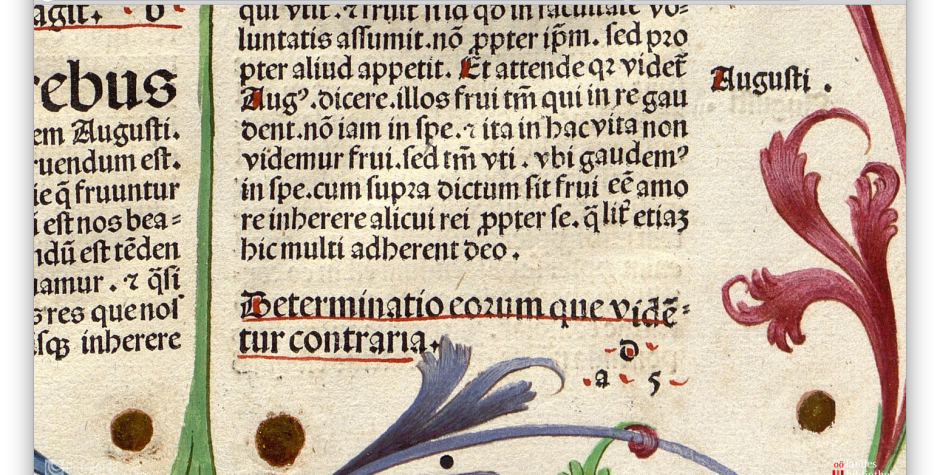 agit. · d ·
rebus
em Augusti.
ruendum est.
ie q̄ fruuntur
i est nos bea⸗
ndū est tēden
amur . ⁊ q̄si
s res que nos
sqꝫ inherere
qui vtit᷑. ⁊ fruit᷑ illa qđ in facultate vo⸗
luntatis assumit. nō ꝓpter ip̄m. sed pro
pter aliud appetit. Et attende qꝛ videt᷑
Augꝰ. dicere. illos frui tm̄ qui in re gau
dent. nō iam in spe. ⁊ ita in hac vita non
videmur frui. sed tm̄ vti . vbi gaudemꝰ
in spe. cum supra dictum sit frui eē amo
re inherere alicui rei ꝓpter se. q̄lit᷑ etiaꝫ
hic multi adherent deo .
Determinatio eorum que vidē⸗
tur contraria.
Augusti .
d
a 5